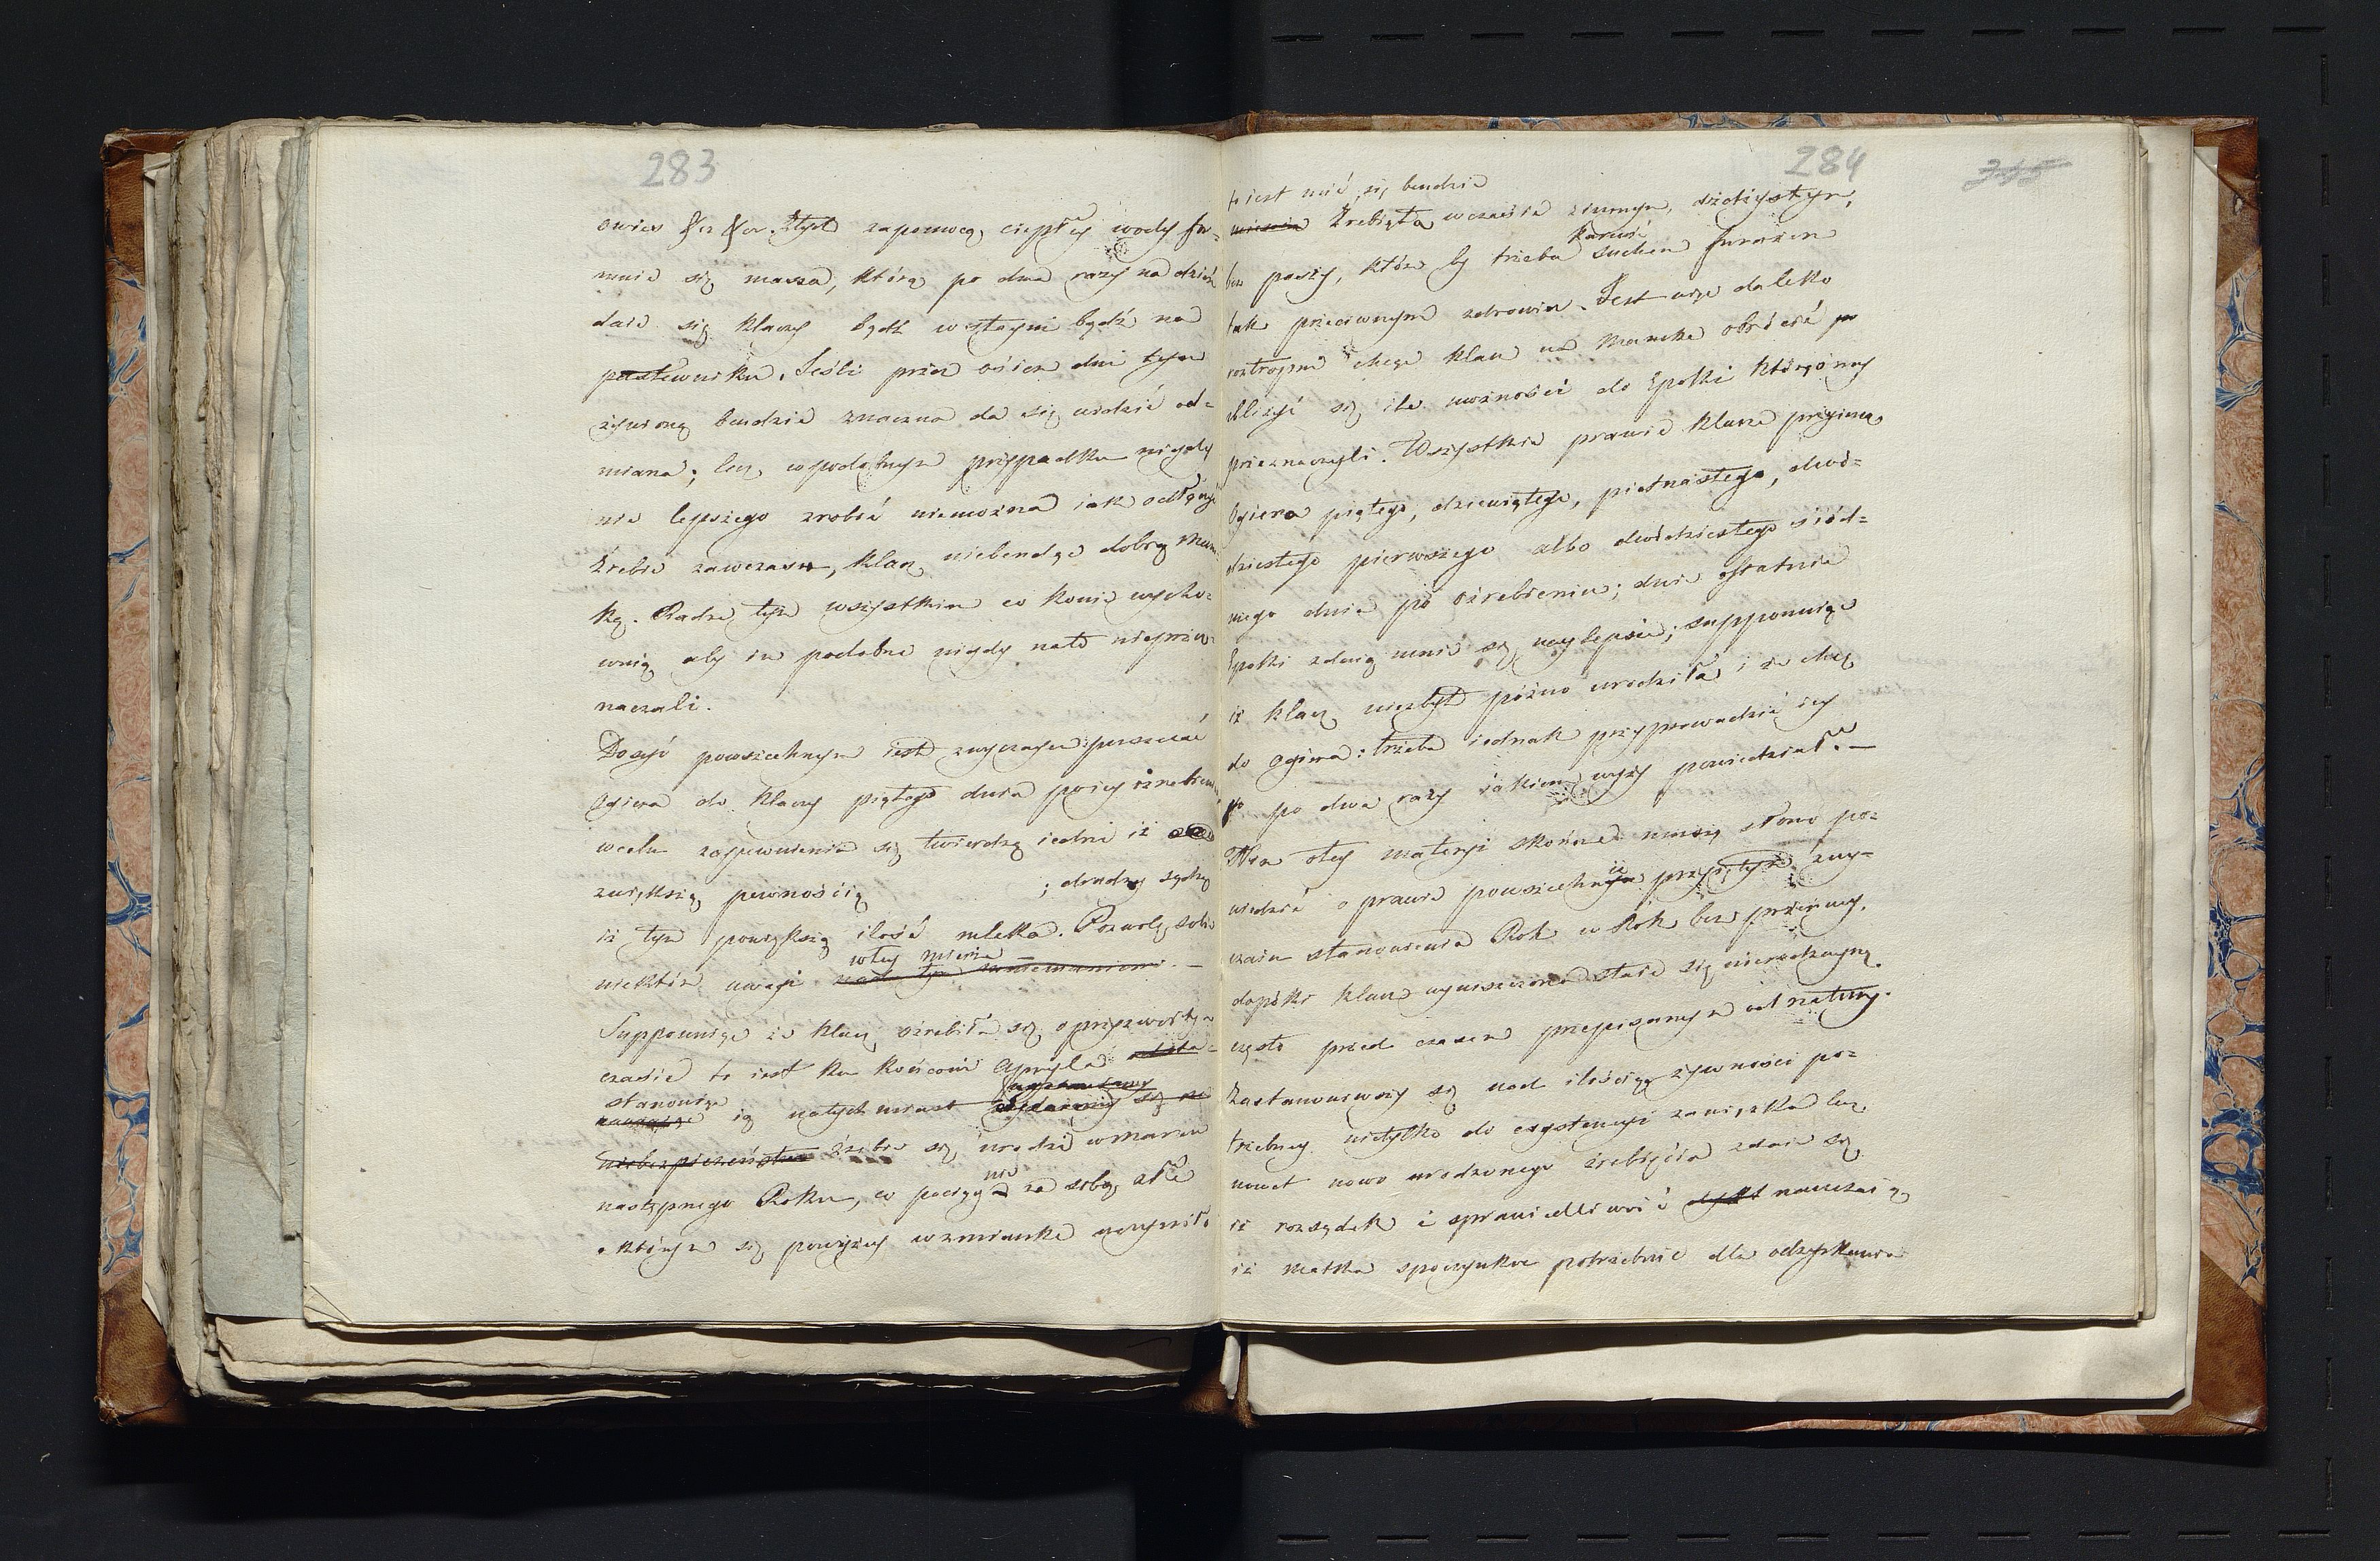 283
owies &a &a. Ztych zapomocą ciepłey wody for=
muie się massa, którą po dwa razy na dzień
daie się klaczy bądź w stayni bądź na
pastewniku. Jeśli przez ośiem dni tym
żywioną bendzie znaczna da się widzieć od=
miana; lecz w podobnym przypadku nigdy
nic lepszego zrobić niemożna iak odłączyć
Źrebie zawczasu, klacz niebendąc dobrą mam=
ką. Radzę tym wszystkim co konie wycho=
wuią aby ie podobne nigdy nato nieprze=
naczali.
Dosyć powszechnym iest zwyczaym puszczać
Ogiera do klaczy piątego dnia po iey oźrebieniu
w celu zapewnienia się twierdzą iedni iż
zwiększą pewnością ; drudzy sądzą
iż tym powiększą ilość mleka. Pozwolę sobie
wtey mierze
niektóre uwagi nad tym mniemaniem. —
Suppponuiąc że klacz oźrebiła się o przyzwoitym
czasie to iest ku końcowi Apryla
stanowiąc
ią natychmiast się na
niebezpieczeństwo źrebie się urodzi w marcu
nie
następnego Roku, co pociąg a za sobą złe
o których się powyżey wzmiankę uczyniło
284
345
to iest mieć się bendzie
Źrebięta w czasie zimnym, dżdżystym,
karmić
bez paszy, które by trzeba suchem furażem
tak przeciwnym zdrowiu. Jest więc daleko
roztropniey chcąc klacz na Mamkę obrócić po
zbliżyć się ile możności do Epoki którąśmy
przeznaczyli. Wszystkie prawie klacze przyimą
Ogiera piątego, dziewiątego, piętnastego, dwu=
dziestego pierwszego albo dwudziestego siód=
mego dnia po oźrebieniu; dwie ostatnie
Epoki zdaią mnie się naylepsze; supponuiąc
iż klacz niezbyt późno urodziła i że chcę
do Ogiera: trzeba iednak przyprowadzić iey
go po dwa razy iakiem wyżey powiedział. —
Nim otey materyi skończę muszę słowo po=
wiedzieć o prawie powszechnym przyiętym zwy=
czaiu stanowienia Rok w Rok bez przerwy,
dopóki klacz wyniszczona staie się nierodzayną
często przed czasem przepisanym od natury.
Zastanowiwszy się nad ilością żywności po=
trzebney nietylko do exystencyi zawiązka lecz
nawet nowo urodzonego źrebięcia zdaie się
iż rozsądek i sprawiedliwość nauczaią,
iż matka spoczynku potrzebuie dla odzyskania